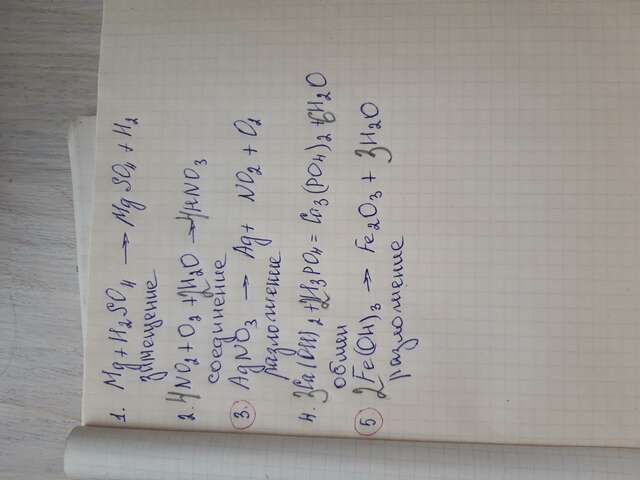 1. Mg + H2SO4 → MgSO4 + H2
замещение
2. 4NO2 + O2 + 2H2O → 4HNO3
соединение
3. AgNO3 → Ag + NO2 + O2
разложение
4. 3Ca(OH)2 + 2H3PO4 = Ca3(PO4)2 + 6H2O
обмен
5 2Fe(OH)3 → Fe2O3 + 3H2O
разложение